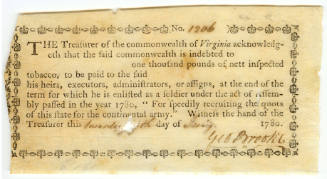 No. 1206
THE Treasurer of the commonwealth of Virginia acknowledg-
eth that the said commonwealth is indebted to
one thousand pounds of nett inspected
tobacco, to be paid to the said
his heirs, executors, administrators, or assigns, at the end of the
term for which he is enlisted as a soldier under the act of assem-
bly passed in the year 1780, "For speedily recruiting the quota
of this state for the continental army." Witness the hand of the
Treasurer this day of 1780.
Geo Brooke